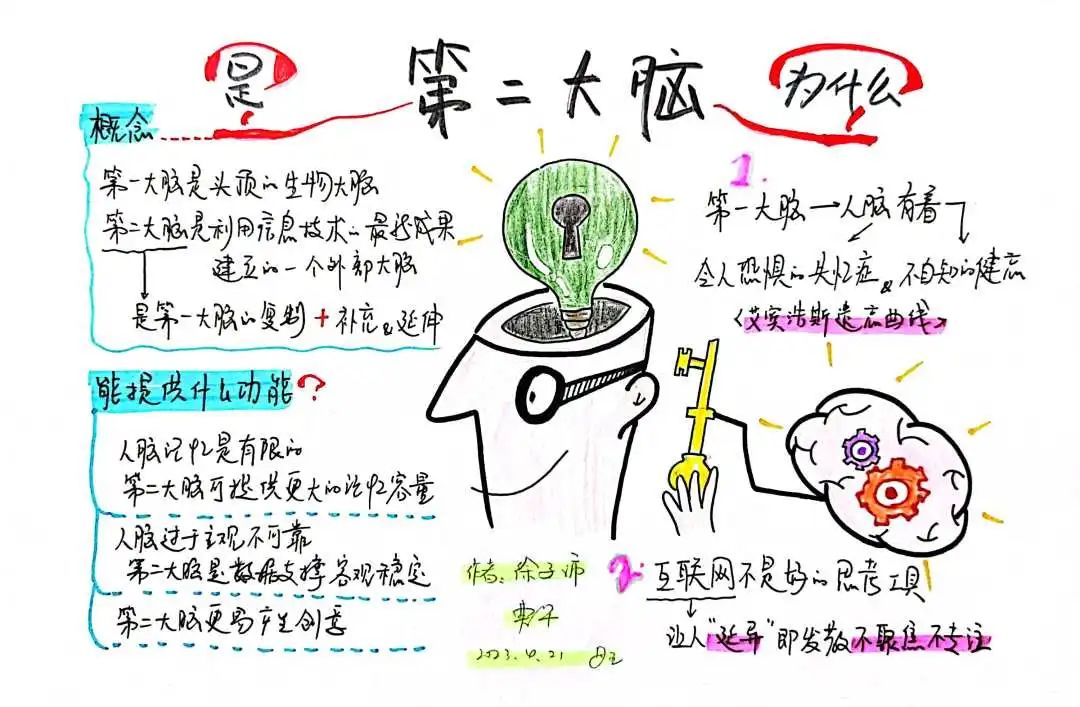 是
第二大脑
为什么
概念
第一大脑是头顶的生物大脑
第二大脑是利用信息技术的最新成果
建立的一个外部大脑
是第一大脑的复制 + 补充&延伸
能提供什么功能?
人脑记忆是有限的
第二大脑可提供更大的记忆容量
人脑过于主观不可靠
第二大脑是数据支撑客观稳定
第二大脑更易产生创意
1.
第一大脑→人脑有着
令人恐惧的失忆症&不自知的健忘
<艾宾浩斯遗忘曲线>
2.
互联网不是好的思考工具
让人"延异"即发散不聚焦不专注
作者:徐子沛
2023.4.21